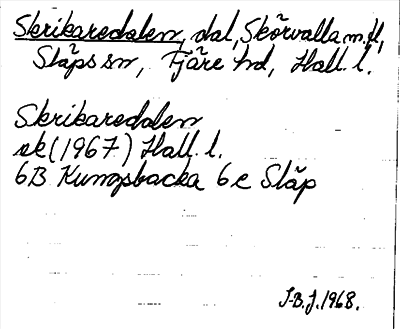 Skrikaredalen, dal, Skörvalla m.fl,
Släps sn, Fjäre hd, Hall. l.
Skrikaredalen
ek (1967) Hall. l.
6B Kungsbacka 6e Släp
J-B.J. 1968.